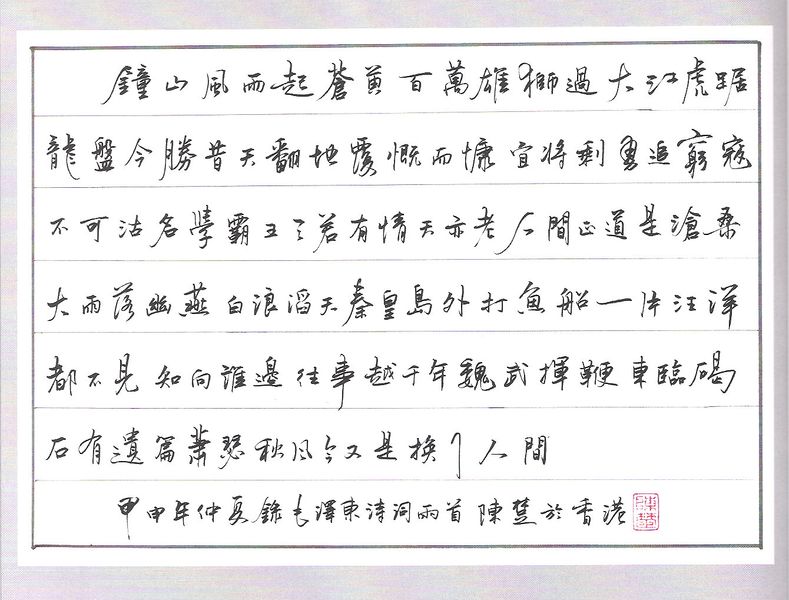 鐘山風雨起蒼黃百萬雄獅過大江虎踞
龍盤今勝昔天翻地覆慨而慷宜將剩勇追窮寇
不可沽名學霸王天若有情天亦老人間正道是滄桑
大雨落幽燕白浪滔天秦皇島外打魚船一片汪洋
都不見知向誰邊往事越千年魏武揮鞭東臨碣
石有遺篇蕭瑟秋風今又是換了人間
甲申年仲夏錄毛澤東詩詞兩首 陳 於香港